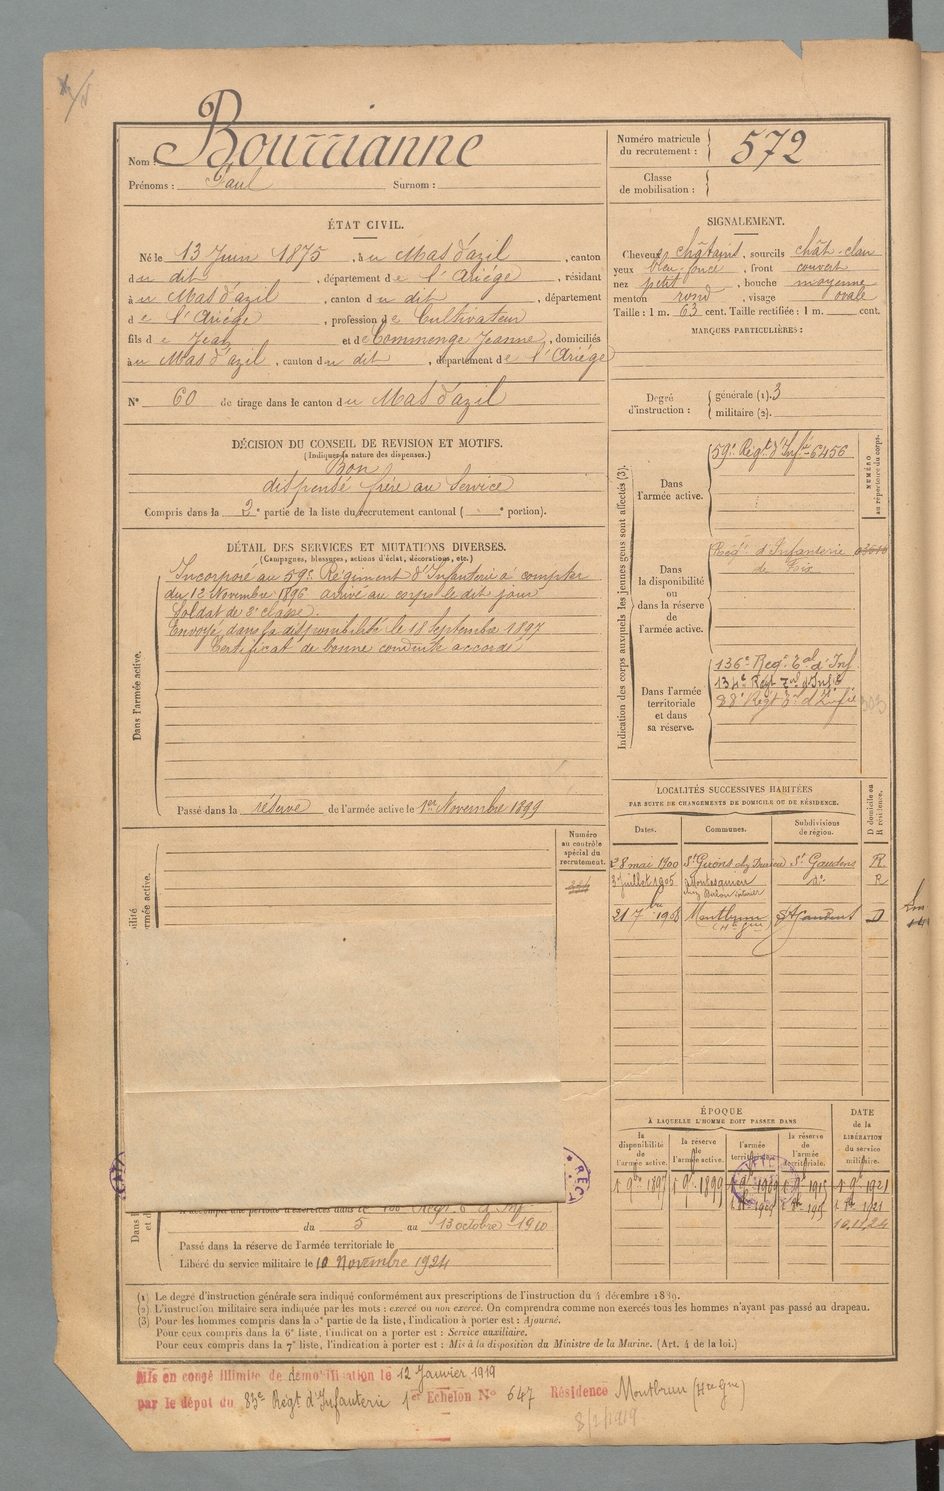 Nom : Bourrianne
Prénoms : Paul Surnom :
Numéro matricule du recrutement : 572
Classe de mobilisation :
ÉTAT CIVIL.
Né le 13 Juin 1875, à u Mas d'azil, canton
d u dit, département d e l'Ariége, résidant
à u Mas d'azil, canton d u dit, département
d e l'Ariége, profession d e Cultivateur
fils d e Jean et d e Commenge Jeanne, domiciliés
à u Mas d'azil, canton d u dit, département d e l'Ariége
N° 60 de tirage dans le canton d u Mas d'azil
SIGNALEMENT.
Cheveux châtains, sourcils chât-clair
yeux bleu foncé, front couvert
nez petit, bouche moyenne
menton rond, visage ovale
Taille : 1 m. 63 cent. Taille rectifiée : 1 m. cent.
MARQUES PARTICULIÈRES :
Degré d'instruction : générale (1). 3
militaire (2).
DÉCISION DU CONSEIL DE REVISION ET MOTIFS.
(Indiquer la nature des dispenses.)
Bon
dispensé frère au Service
Compris dans la 2e partie de la liste du recrutement cantonal ( e portion).
DÉTAIL DES SERVICES ET MUTATIONS DIVERSES.
(Campagnes, blessures, actions d'éclat, décorations, etc.)
Dans l'armée active.
Incorporé au 59e Régiment d'Infanterie à compter
du 12 Novembre 1896 arrivé au corps le dit jour
Soldat de 2e classe.
Envoyé dans la disponibilité le 18 Septembre 1897
Certificat de bonne conduite accordé
Passé dans la réserve de l'armée active le 1er Novembre 1899
Indication des corps auxquels les jeunes gens sont affectés (3).
NUMÉRO au répertoire du corps.
Dans l'armée active.
59e Régt d'Infie 6456
Dans la disponibilité ou dans la réserve de l'armée active.
Régt d'Infanterie
de Foix
Dans l'armée territoriale et dans sa réserve.
136e Regt Tal d'Inf.
134e Régt Tal d'Inf.
88e Régt d'Infie
LOCALITÉS SUCCESSIVES HABITÉES
PAR SUITE DE CHANGEMENTS DE DOMICILE OU DE RÉSIDENCE.
Dates. Communes. Subdivisions de région. D domicile ou R résidence.
28 mai 1900 St Girons St Gaudens R
3 juillet 1905 Montesquieu do R
21 7bre 1908 Montbrun (Hte Gne) St Gaudens D
Numéro au contrôle spécial du recrutement.
ÉPOQUE
À LAQUELLE L'HOMME DOIT PASSER DANS
la disponibilité de l'armée active. la réserve de l'armée active. l'armée territoriale. la réserve de l'armée territoriale.
DATE de la LIBÉRATION du service militaire.
1 9bre 1897 1 9bre 1899 1 9bre 1909 1 9bre 1915 1 9bre 1921
10.11.24
du 5 au 13 octobre 1910
Passé dans la réserve de l'armée territoriale le
Libéré du service militaire le 10 Novembre 1924
(1) Le degré d'instruction générale sera indiqué conformément aux prescriptions de l'instruction du 4 décembre 1889.
(2) L'instruction militaire sera indiquée par les mots : exercé ou non exercé. On comprendra comme non exercés tous les hommes n'ayant pas passé au drapeau.
(3) Pour les hommes compris dans la 5e partie de la liste, l'indication à porter est : Ajourné.
Pour ceux compris dans la 6e liste, l'indication à porter est : Service auxiliaire.
Pour ceux compris dans la 7e liste, l'indication à porter est : Mis à la disposition du Ministre de la Marine. (Art. 4 de la loi.)
Mis en congé illimité de démobilisation le 12 Janvier 1919
par le dépot du 83e Régt d'Infanterie 1er Echelon N° 647 Résidence Montbrun (Hte Gne)
8/2/1919.